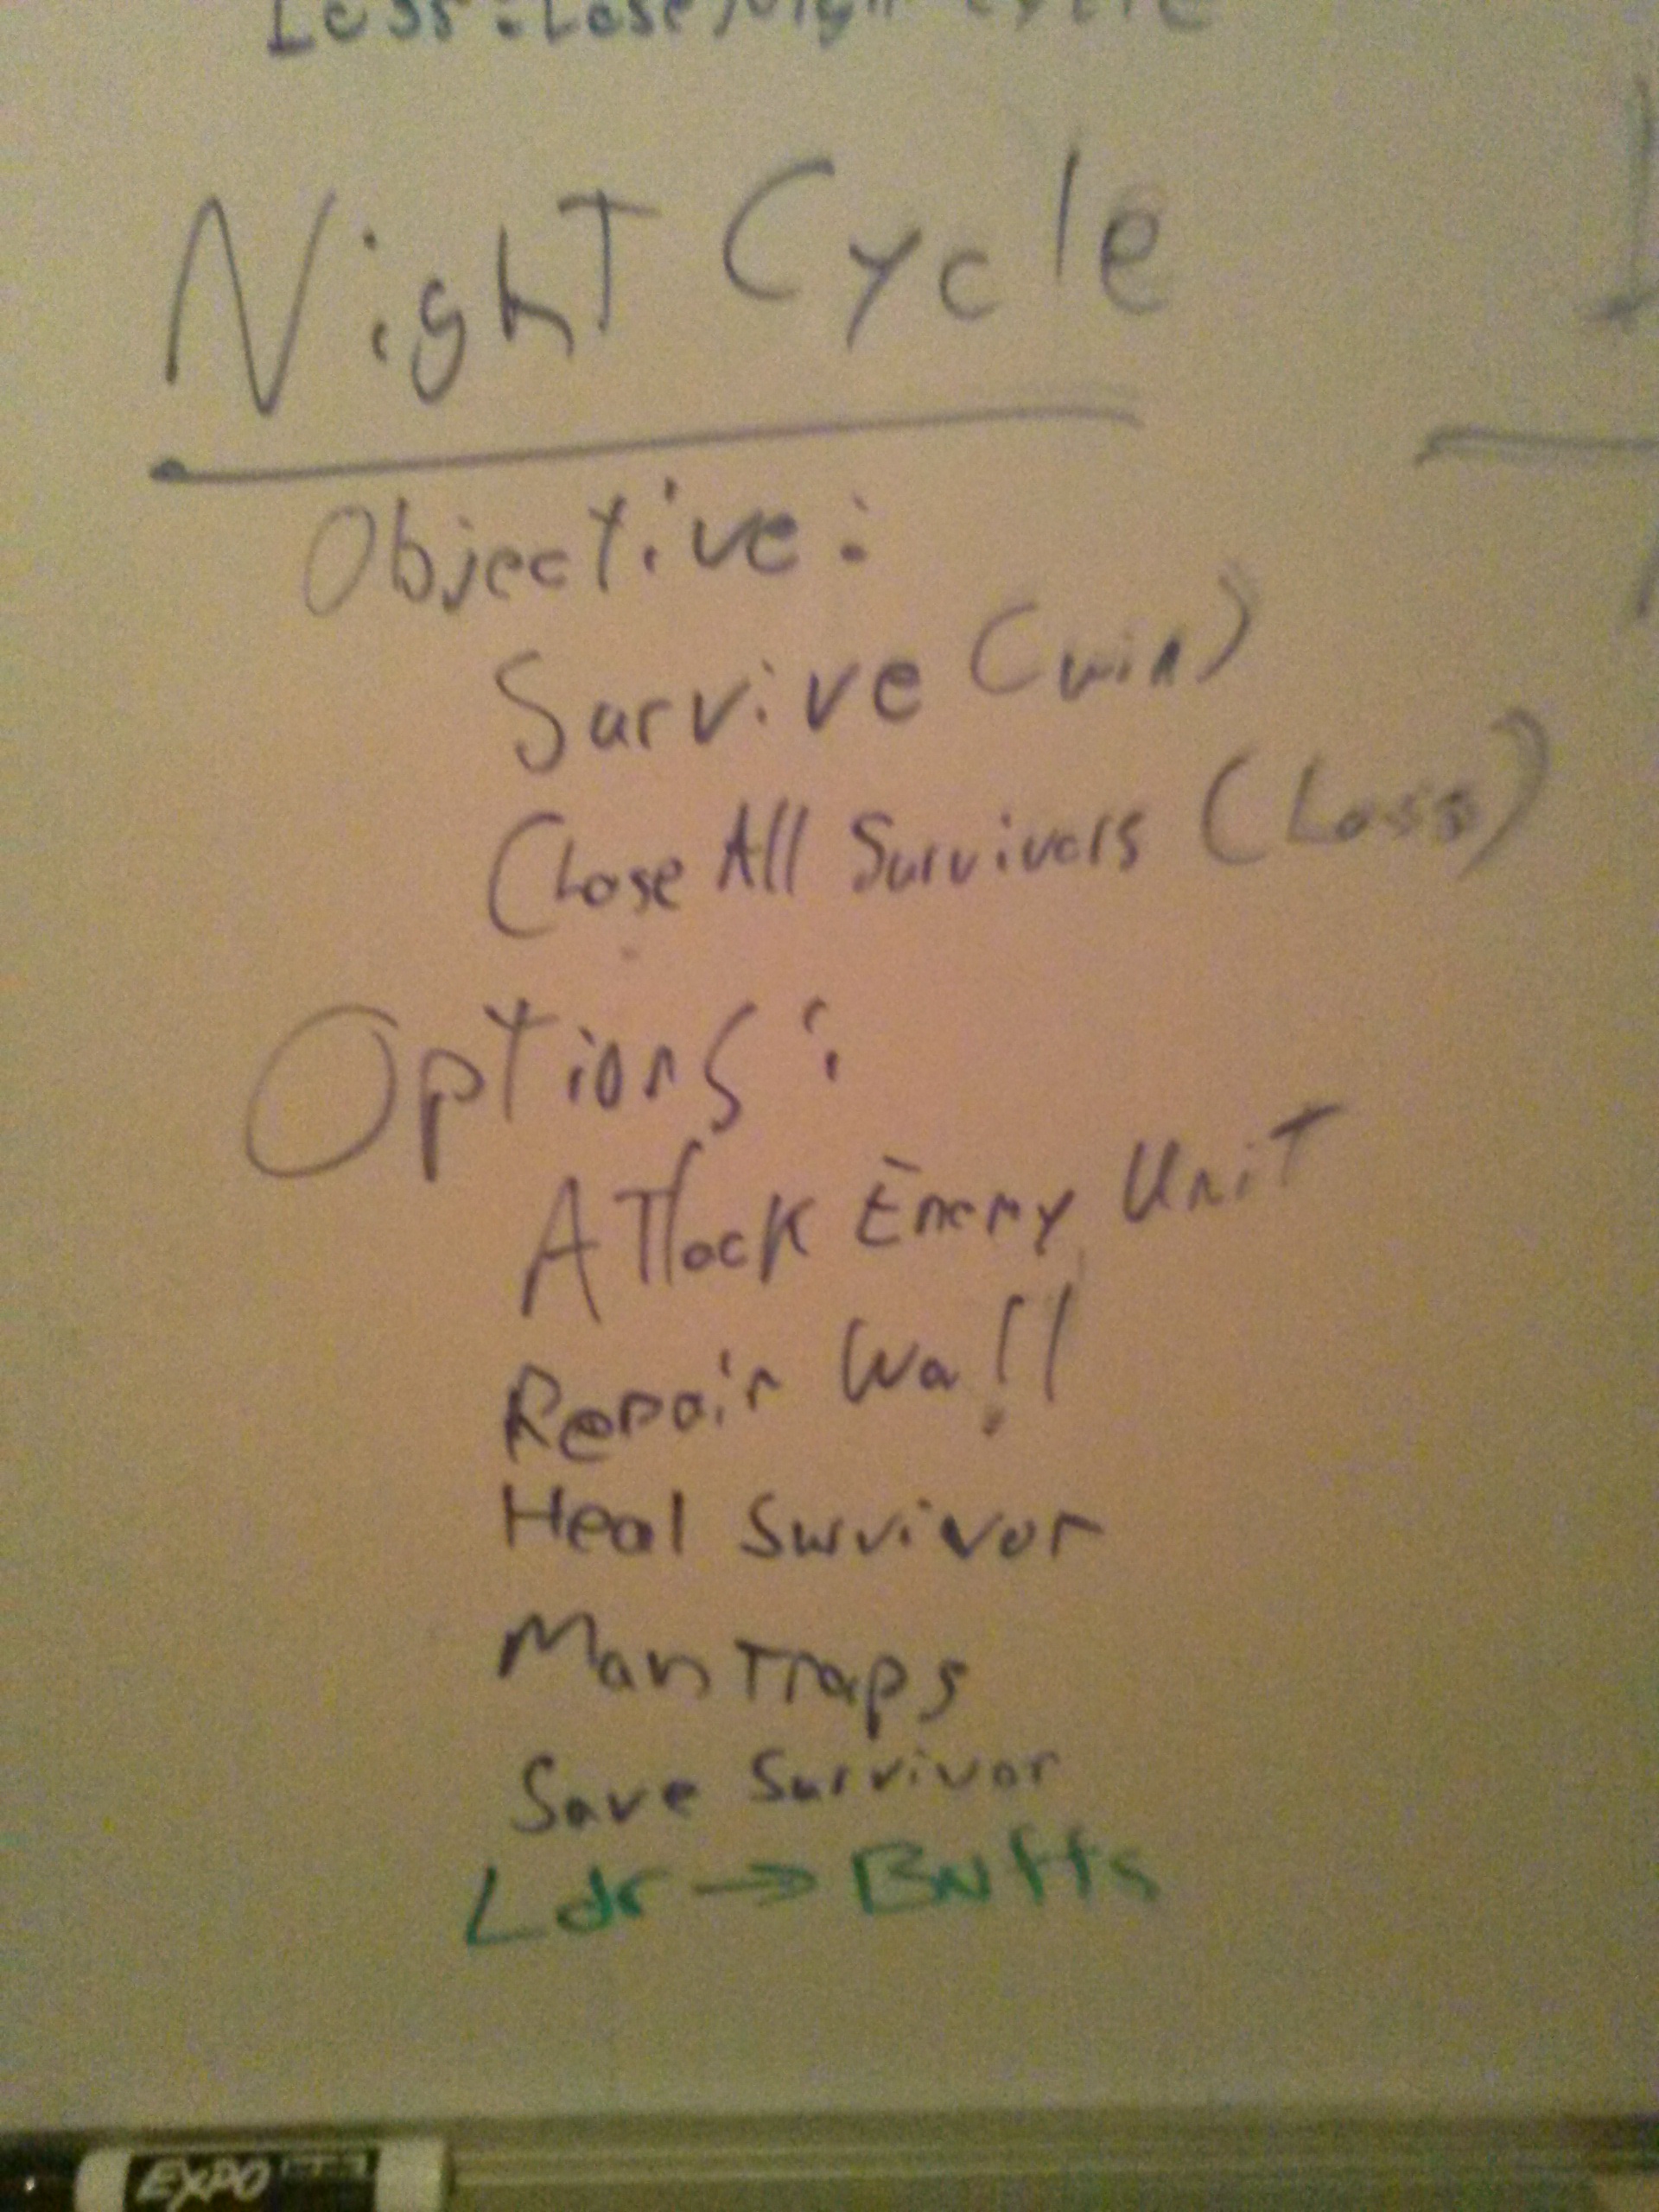 Loss: Lose Night Cycle
Night Cycle
Objective:
Survive (win)
(Lose All Survivors (Loss)
Options:
Attack Enemy Unit
Repair Wall
Heal Survivor
Man Traps
Save Survivor
Ldr → Buffs
EXPO